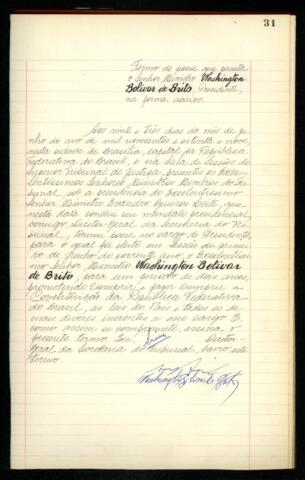 31
Termo de posse que presta
o Senhor Ministro Washington
Bolívar de Brito, Presidente,
na forma abaixo.
Aos três dias do mês de ju-
nho do ano de mil novecentos e oitenta e nove,
nesta cidade de Brasília, capital da República
Federativa do Brasil, e na Sala de Sessões do
Superior Tribunal de Justiça, presentes os Exce-
lentíssimos Senhores Ministros Membros do Tri-
bunal, sob a presidência do Excelentíssimo
Senhor Ministro Evandro Gueiros Leite, que
nesta data conclui seu mandato presidencial,
comigo Diretor-Geral da Secretaria do Tri-
bunal, tomou posse no cargo de Presidente,
para o qual foi eleito em Sessão de primei-
ro de junho do corrente ano, o Excelentíssi-
mo Senhor Ministro Washington Bolívar
de Brito, para um período de dois anos,
prometendo cumprir e fazer cumprir a
Constituição da República Federativa
do Brasil, as leis do País e todos os de-
mais deveres inerentes a esse cargo. E,
como assim se comprometeu, assina o
presente termo. Eu, Diretor-
Geral da Secretaria do Tribunal, lavro este
termo.